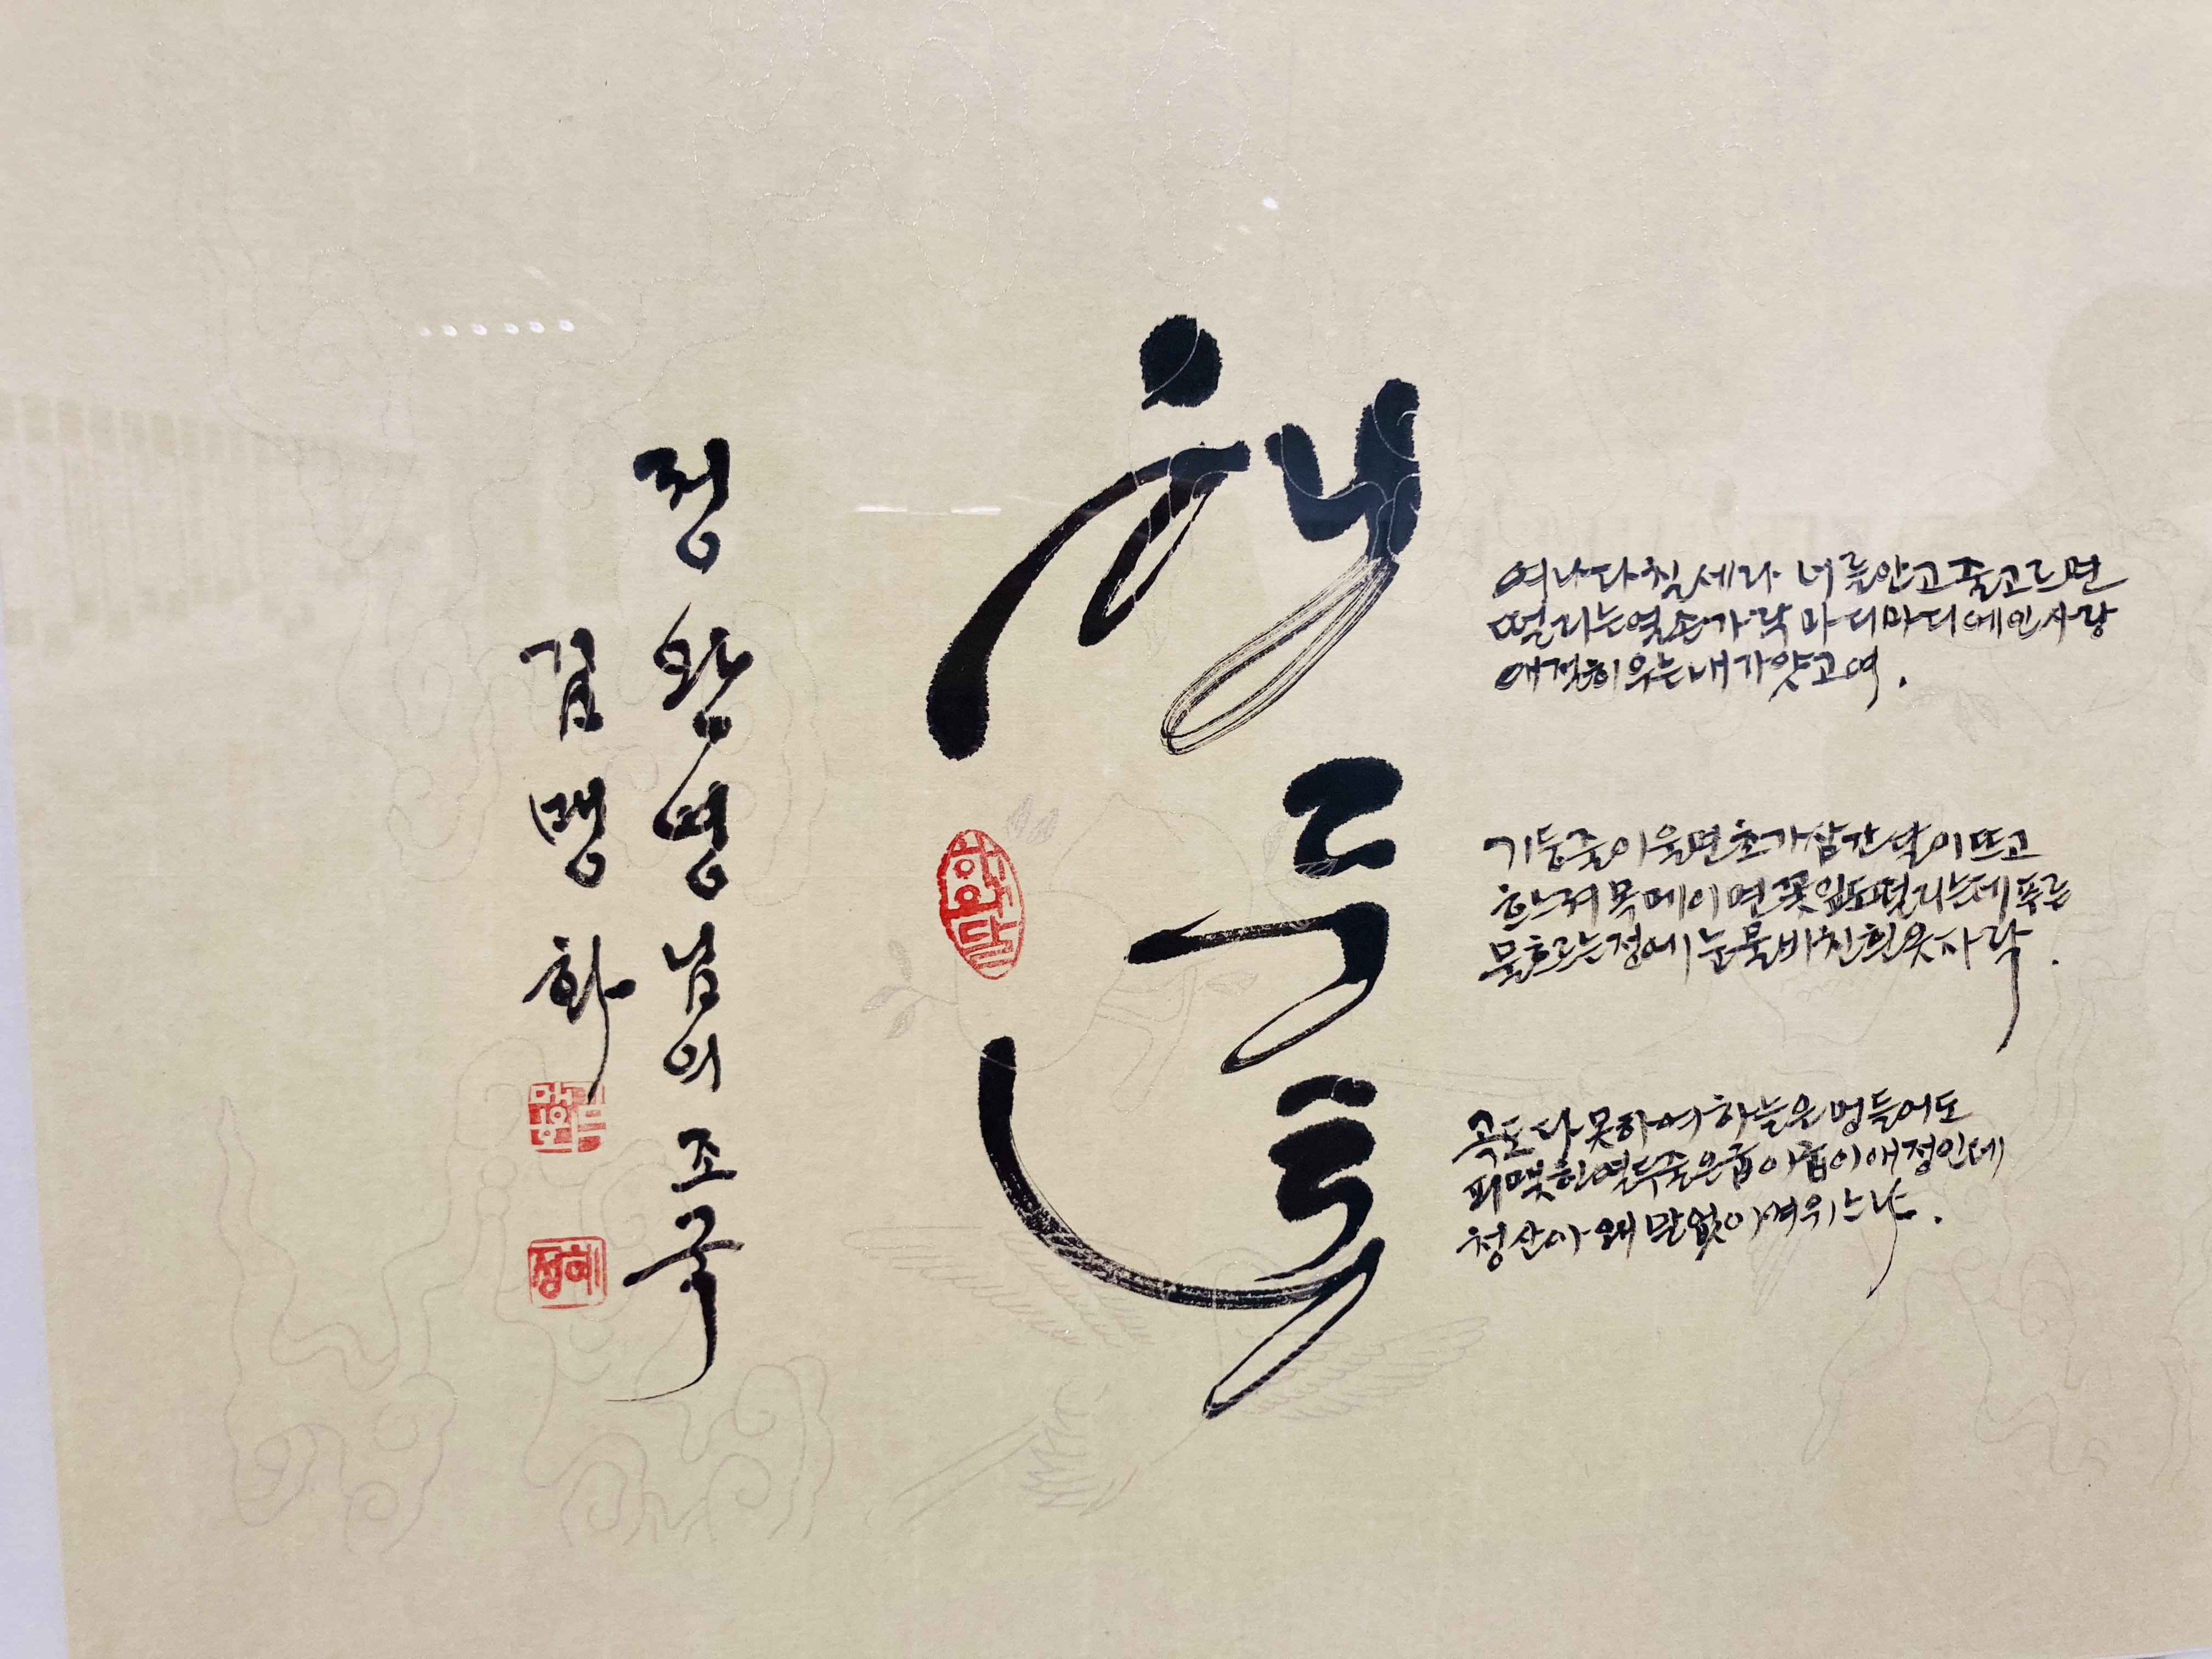 여나 다칠세라 너를안고 줄고르면
떨리는 열손가락 마디마디 에인사랑
애절히 우는 내가얏고여.
기둥줄이 울면 초가삼간 달이뜨고
흐느껴 목메이면 꽃잎도떨리는데 푸른
물흐르는정에 눈물비친 흰옷자락.
곡도다못하여 하늘은 멍들어도
피맺힌열두줄은 굽이굽이애정인데
청산아 왜 말없이 여위느냐.
정완영님의 조국
김맹화